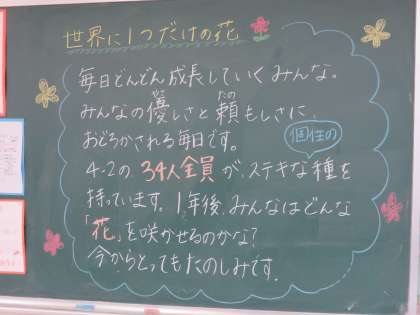 世界に1つだけの花
毎日どんどん成長していくみんな。
みんなの優しさと頼もしさに、
おどろかされる毎日です。
個性の
4-2の34人全員が、ステキな種を
持っています。1年後、みんなはどんな
「花」を咲かせるのかな?
今からとってもたのしみです。